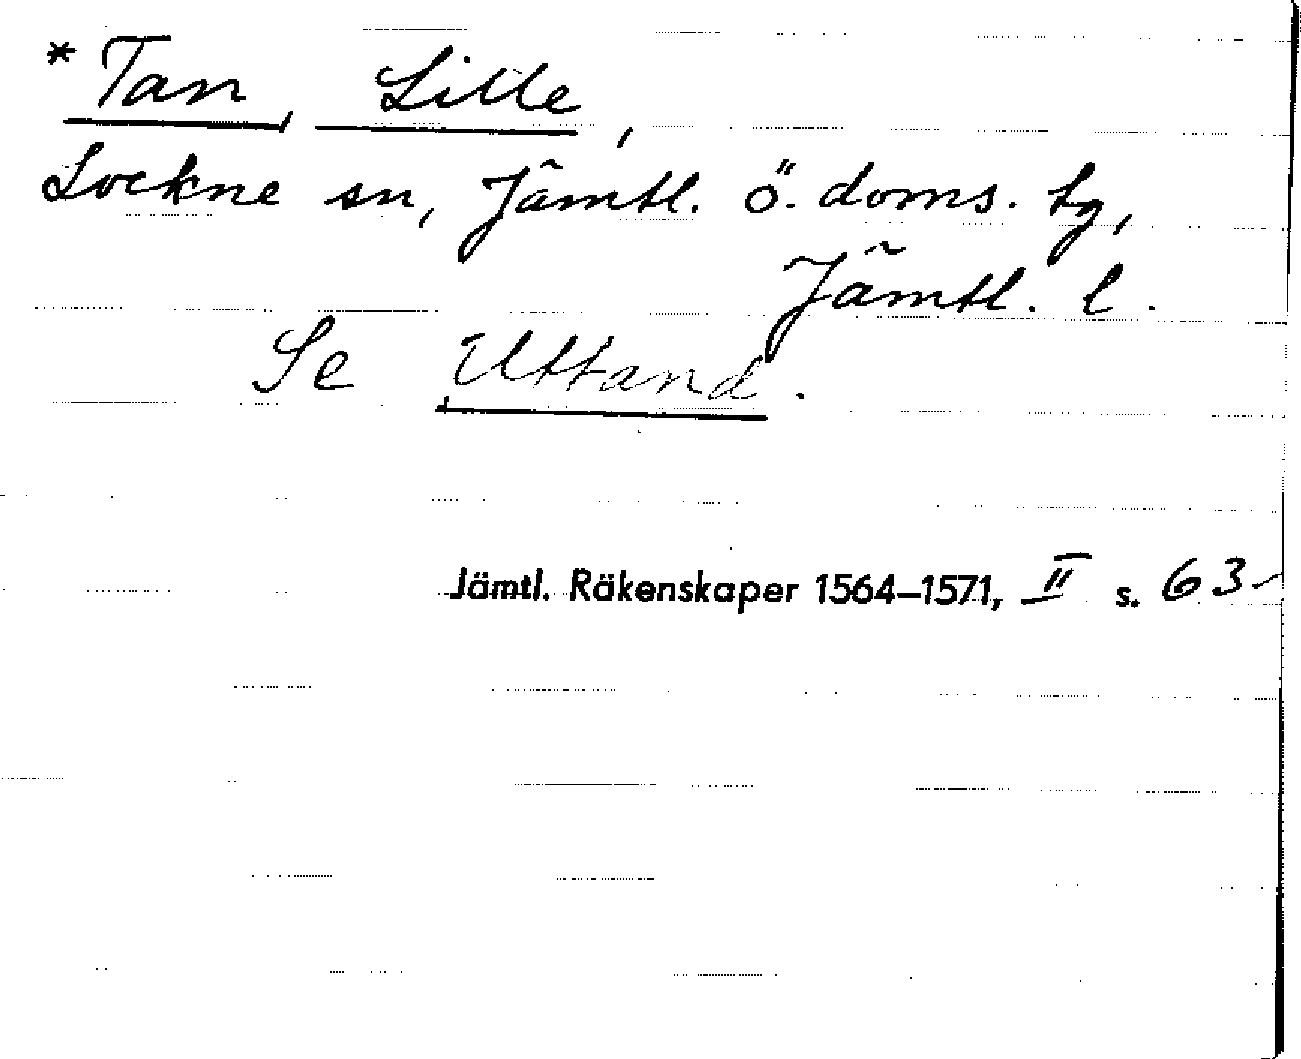 * Tan, Lille,
Lockne sn, Jämtl. ö. doms. tg,
Jämtl. l.
Se Uttand.
Jämtl. Räkenskaper 1564–1571, II s. 63